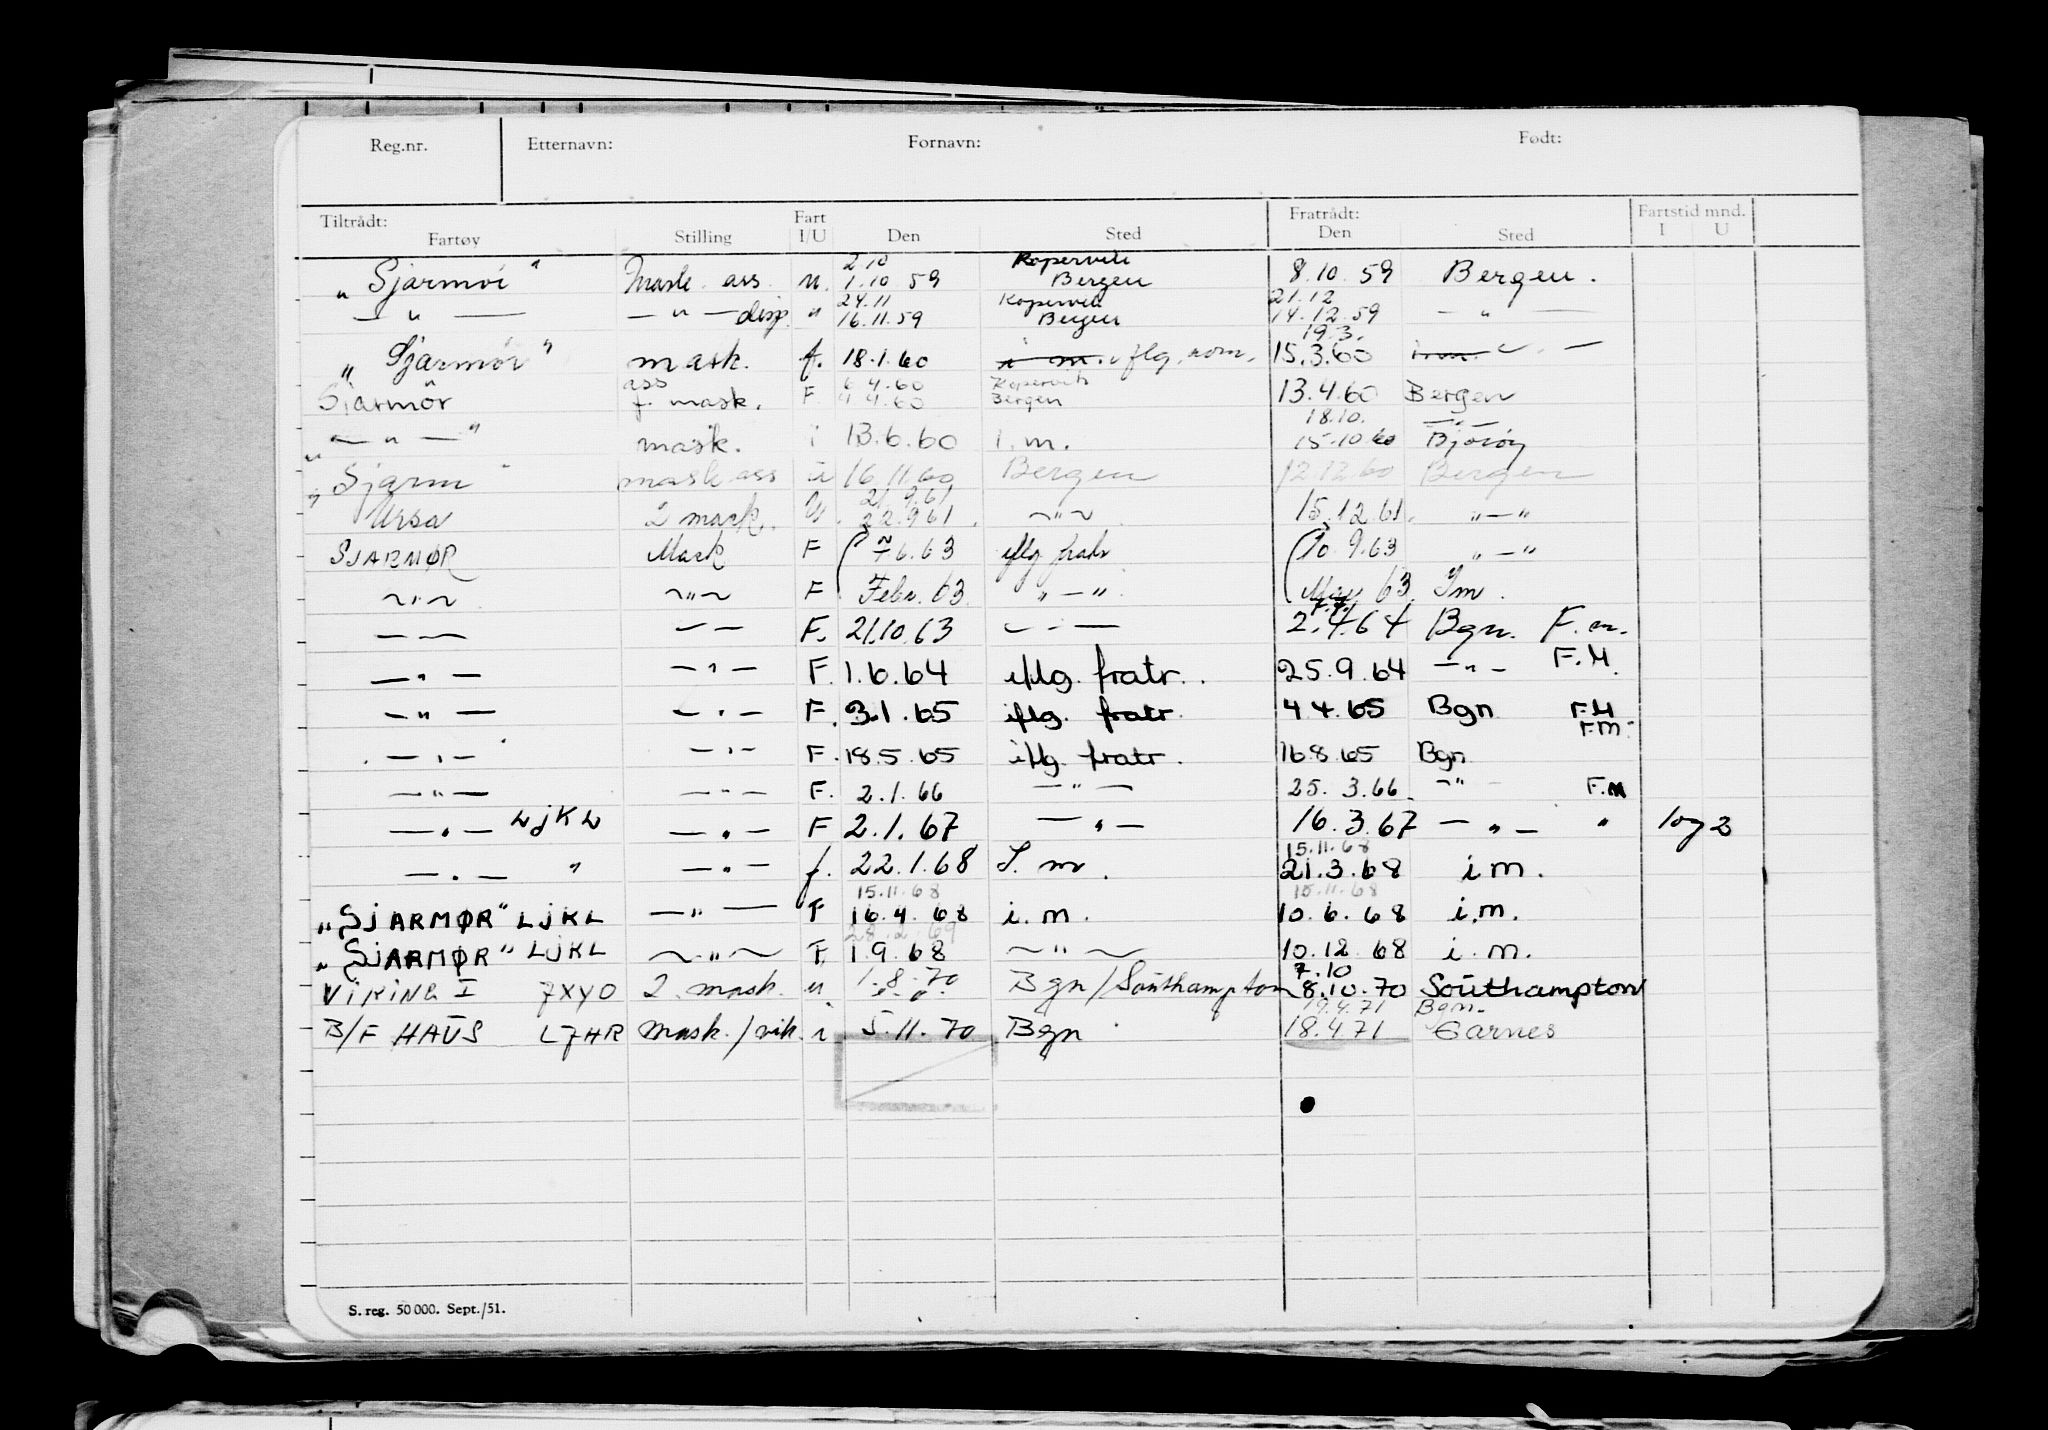 Reg.nr. Etternavn: Fornavn: Født:
Tiltrådt: Fart Fratrådt: Fartstid mnd.
Fartøy Stilling I/U Den Sted Den Sted I U
2.10 Kopervik
"Sjarmør" Mask. ass. u. 1.10 59 Bergen 8.10.59 Bergen.
24.11 Kopervik 21.12
— " — — " — disp. " 16.11.59 Bergen 14.12.59 — " —
19.3.
"Sjarmör" mask. f. 18.1.60 i m. iflg. 15.3.60 i.m. — " —
ass 6.4.60 Kopervik
Sjarmör f. mask. F 4.4.60 Bergen 13.4.60 Bergen
18.10. — " —
— " — " mask. i 13.6.60 i.m. 15.10 60
"Sjarm " mask ass u 16.11.60 Bergen 12.12.60 Bergen
21.9.61
Ursa 2 mask. U. 22.9.61. — " — 15.12.61. " — "
SJARMØR Mask F 6.63 iflg fratr 10.9.63 " — "
— " — — " — F Febr. 63. " — ". May 63. I m.
— — — — F. 21.10.63 — " — 2.4.64 Bgn. F.m.
— " — — " — F. 1.6.64 iflg. fratr. 25.9.64 — " — F.M.
— " — — " — F. 3.1.65 iflg. fratr. 4 4.65 Bgn F.M
F.M.
— " — — " — F. 18.5.65 iflg. fratr. 16.8.65 Bgn
— " — — " — F. 2.1.66 — " — 25.3.66. — " — F.M
— " — LJKL — " — F 2.1.67 — " — 16.3.67 — " — " 1og 2
15.11.68
— " — " — " — f. 22.1.68 I.m. 21.3.68 i m.
15.11.68 15.11.68
"SJARMØR" LJKL — " — F 16.4.68 i.m. 10.6.68 i.m.
28.2.69
"SJARMØR" LJKL — " — F. 1.9.68 — " — 10.12.68 i.m.
7.10
VIKING I 7XYO 2. mask. u 1.8.70 Bgn/Southampton 8.10.70 Southampton
19.4.71 Bgn.
B/F HAUS LJHR Mask./vik. i 5.11.70 Bgn 18.4.71 Garnes
S. reg. 50 000. Sept./51.